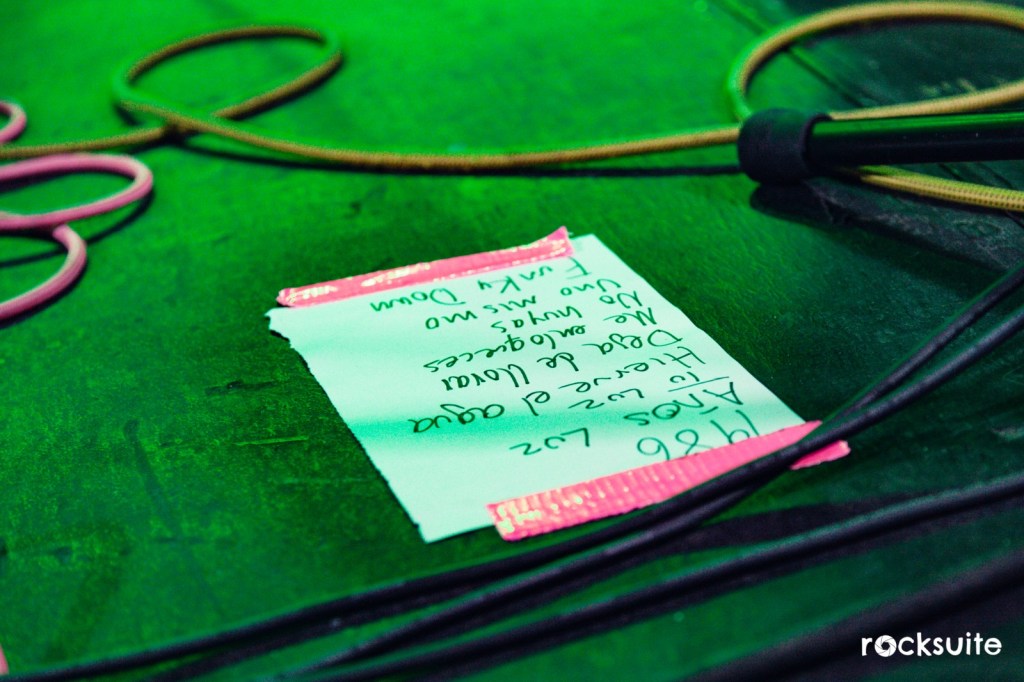 1986
Años LUZ
Tú LUZ
Hierve el agua
Deja de llorar
Me enloqueces
No huyas
Uno mismo
Funky Down
rocksuite